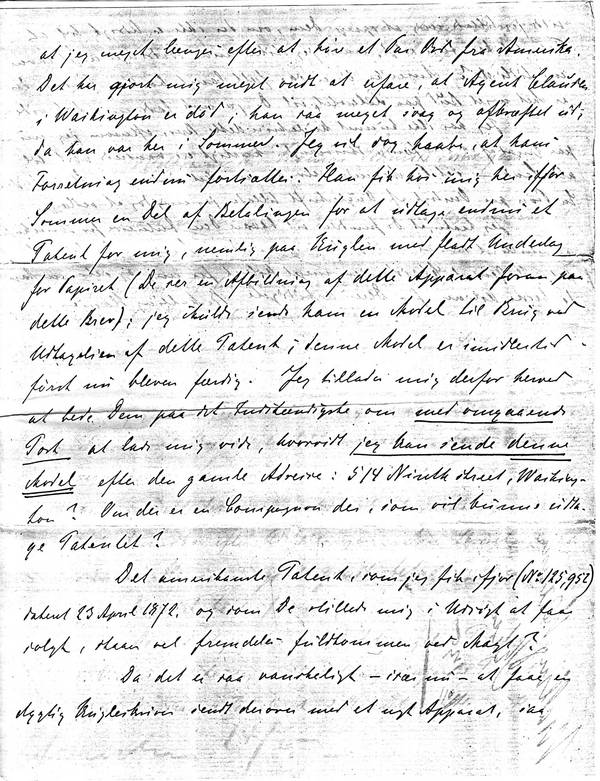 at jeg meget længes efter at høre et Par Ord fra Amerika.
Det har gjort mig meget ondt at erfare, at Agent Clausen
i Washington er død; han saa meget svag og afkræftet ud,
da han var her i Sommer. Jeg vil dog haabe, at hans
Forretning endnu fortsættes. Han fik hos mig her ifjor
Sommer en Del af Betalingen for at udtage endnu et
Patent for mig, nemlig paa Kuglen med fladt Underlag
for Papiret (De ser en Afbildning af dette Apparat foran paa
dette Brev); jeg skulde sende ham en Model til Brug ved
Udtagelsen af dette Patent; denne Model er imidlertid
først nu bleven færdig. Jeg tillader mig derfor herved
at bede Dem paa det Indstændigste om med omgaaende
Post at lade mig vide, hvorvidt jeg kan sende denne
Model efter den gamle Adresse: 514 Ninth street, Washing-
ton? Om der er en Compagnon der, som vil kunne udta-
ge Patentet?
Det amerikanske Patent, som jeg fik ifjor (No 125,952)
dateret 23 April 1872, og som De stillede mig i Udsigt at faa
solgt, staar vel fremdeles fuldkommen ved Magt?
Da det er saa vanskeligt – især nu – at faae en
dygtig Kugleskriver sendt derover med et nyt Apparat, saa